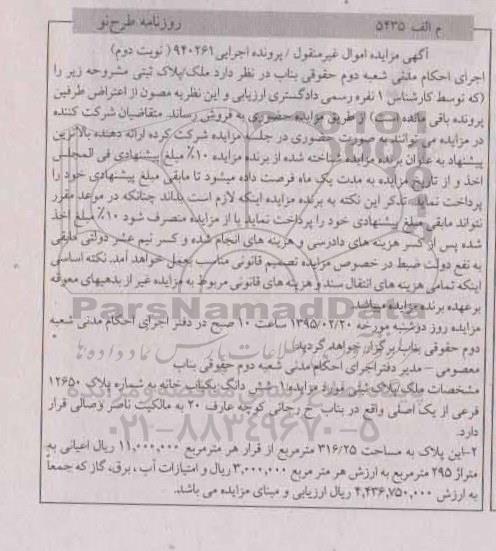 م الف ۵۴۳۵ روزنامه طرح نو
آگهی مزایده اموال غیر منقول / پرونده اجرایی ۹۴۰۲۶۱ ( نوبت دوم)
اجرای احکام مدنی شعبه دوم حقوقی بناب در نظر دارد ملک/پلاک ثبتی مشروحه زیر را
(که توسط کارشناس ۱ نفره رسمی دادگستری ارزیابی و این نظریه مصون از اعتراض طرفین
پرونده باقی مانده است) از طریق مزایده حضوری به فروش رساند. متقاضیان شرکت کننده
در مزایده می توانند به صورت حضوری در جلسه مزایده شرکت کرده ارائه دهنده بالاترین
پیشنهاد به عنوان برنده مزایده شناخته شده از برنده مزایده ۱۰٪ مبلغ پیشنهادی فی المجلس
اخذ و از تاریخ مزایده به مدت یک ماه فرصت داده میشود تا مابقی مبلغ پیشنهادی خود را
پرداخت نماید. تذکر این نکته به برنده مزایده اینکه لازم است بداند چنانکه در موعد مقرر
نتواند مابقی مبلغ پیشنهادی خود را پرداخت نماید یا از مزایده منصرف شود ۱۰٪ مبلغ اخذ
شده پس از کسر هزینه های دادرسی و هزینه های انجام شده و کسر نیم عشر دولتی مابقی
به نفع دولت ضبط در خصوص مزایده تصمیم قانونی مناسب بعمل خواهد آمد. نکته اساسی
اینکه تمامی هزینه های انتقال سند و هزینه های قانونی مربوط به مزایده غیر از بدهیهای معوقه
بر عهده برنده مزایده میباشد.
مزایده روز دوشنبه مورخه ۱۳۹۵/۰۲/۲۰ ساعت ۱۰ صبح در دفتر اجرای احکام مدنی شعبه
دوم حقوقی بناب برگزار خواهد گردید.
معصومی – مدیر دفتر اجرای احکام مدنی شعبه دوم حقوقی بناب
مشخصات ملک/پلاک ثبتی مورد مزایده: ۱- شش دانگ یکباب خانه به شماره پلاک ۱۲۶۵۰
فرعی از یک اصلی واقع در بناب خ رجائی کوچه عارف ۲۰ به مالکیت ناصر وصالی قرار
دارد.
۲-این پلاک به مساحت ۳۱۶/۲۵ مترمربع از قرار هر مترمربع ۱۱,۰۰۰,۰۰۰ ریال اعیانی به
متراژ ۲۹۵ مترمربع به ارزش هر متر مربع ۳,۰۰۰,۰۰۰ ریال و امتیازات آب ، برق، گاز که جمعاً
به ارزش ۴,۴۳۶,۷۵۰,۰۰۰ ریال ارزیابی و مبنای مزایده می باشد.
ParsNamadData
۰۲۱-۸۸۳۴۹۶۷۰-۵